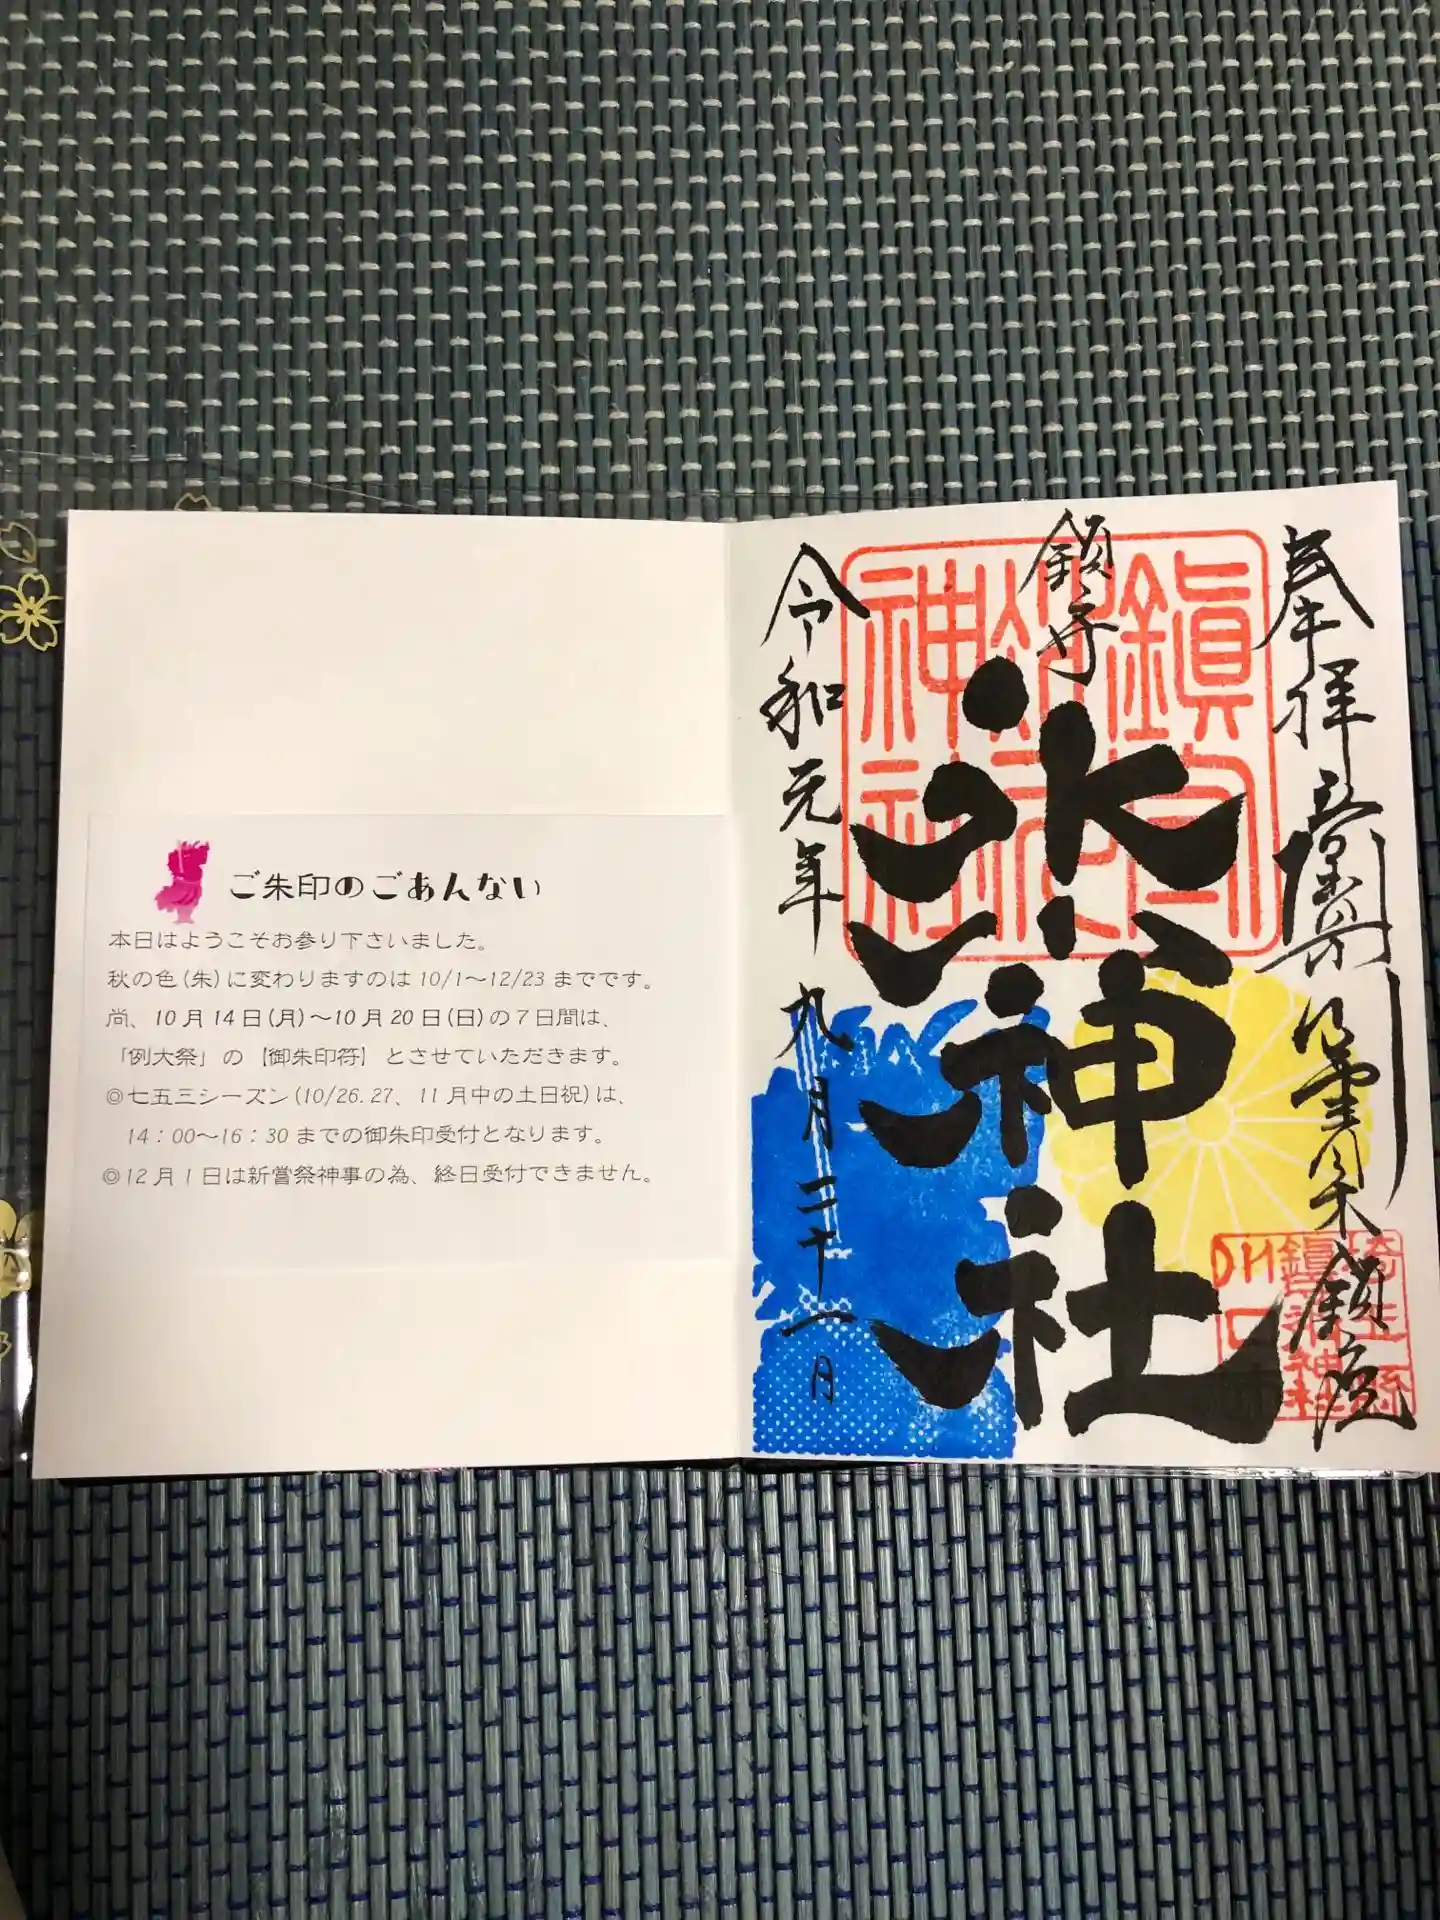 ご朱印のごあんない
本日はようこそお参り下さいました。
秋の色(朱)に変わりますのは10/1～12/23までです。
尚、10月14日(月)～10月20日(日)の7日間は、
「例大祭」の【御朱印符】とさせていただきます。
◎七五三シーズン(10/26.27、11月中の土日祝)は、
14：00～16：30までの御朱印受付となります。
◎12月1日は新嘗祭神事の為、終日受付できません。
奉拝
鎮守
氷川神社
令和元年九月二十一日
埼玉縣
鎮守氷川神社
川口市